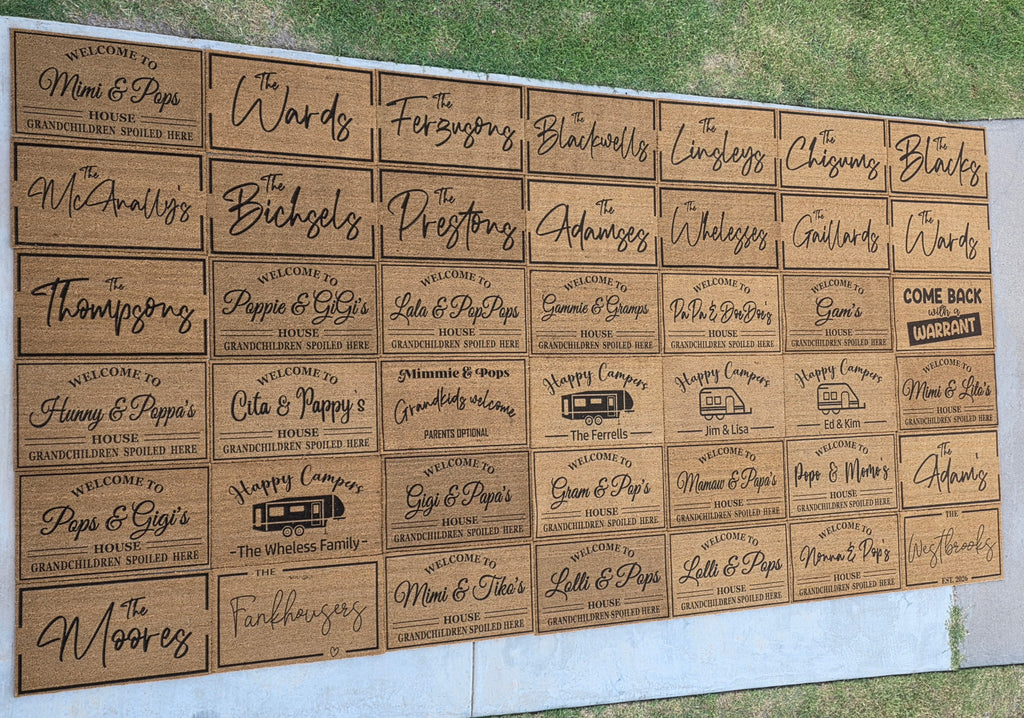 WELCOME TO
Mimi & Pops
HOUSE
GRANDCHILDREN SPOILED HERE
The
Wards
The
Fergusons
The
Blackwells
The
Linsleys
The
Chisums
The
Blacks
The
McAnally's
The
Bichsels
The
Prestons
The
Adamses
The
Whelesses
The
Gaillards
The
Wards
The
Thompsons
WELCOME TO
Poppie & GiGi's
HOUSE
GRANDCHILDREN SPOILED HERE
WELCOME TO
Lala & PopPops
HOUSE
GRANDCHILDREN SPOILED HERE
WELCOME TO
Gammie & Gramps
HOUSE
GRANDCHILDREN SPOILED HERE
WELCOME TO
PaPa & DoeDoe's
HOUSE
GRANDCHILDREN SPOILED HERE
WELCOME TO
Gam's
HOUSE
GRANDCHILDREN SPOILED HERE
COME BACK
with a
WARRANT
WELCOME TO
Hunny & Poppa's
HOUSE
GRANDCHILDREN SPOILED HERE
WELCOME TO
Cita & Pappy's
HOUSE
GRANDCHILDREN SPOILED HERE
Mimmie & Pops
Grandkids welcome
PARENTS OPTIONAL
Happy Campers
The Ferrells
Happy Campers
Jim & Lisa
Happy Campers
Ed & Kim
WELCOME TO
Mimi & Lilo's
HOUSE
GRANDCHILDREN SPOILED HERE
WELCOME TO
Pops & Gigi's
HOUSE
GRANDCHILDREN SPOILED HERE
Happy Campers
-The Wheless Family-
WELCOME TO
Gigi & Papa's
HOUSE
GRANDCHILDREN SPOILED HERE
WELCOME TO
Gram & Pap's
HOUSE
GRANDCHILDREN SPOILED HERE
WELCOME TO
Mamaw & Papa's
HOUSE
GRANDCHILDREN SPOILED HERE
WELCOME TO
Popo & Momo's
HOUSE
GRANDCHILDREN SPOILED HERE
The
Adam's
The
Moores
THE
Fankhousers
WELCOME TO
Mimi & Tiko's
HOUSE
GRANDCHILDREN SPOILED HERE
WELCOME TO
Lolli & Pops
HOUSE
GRANDCHILDREN SPOILED HERE
WELCOME TO
Lolli & Pops
HOUSE
GRANDCHILDREN SPOILED HERE
WELCOME TO
Nonna & Pop's
HOUSE
GRANDCHILDREN SPOILED HERE
THE
Westbrooks
EST. 2026